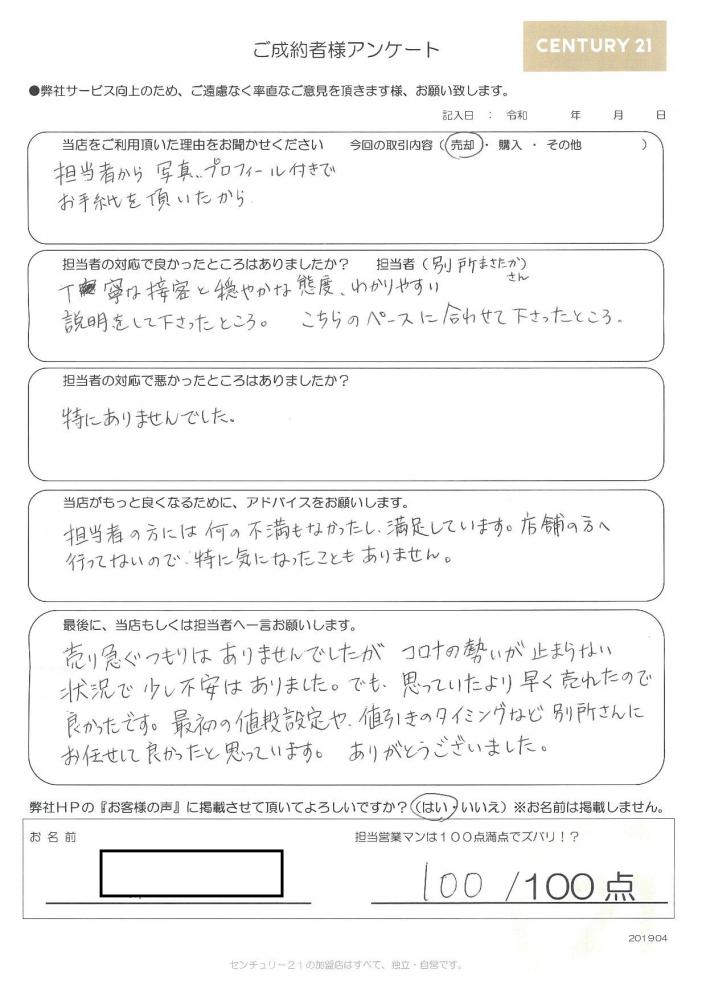 ご成約者様アンケート
CENTURY 21
●弊社サービス向上のため、ご遠慮なく率直なご意見を頂きます様、お願い致します。
記入日 : 令和 年 月 日
当店をご利用頂いた理由をお聞かせください 今回の取引内容（売却・購入・その他 ）
担当者から 写真、プロフィール付きで
お手紙を頂いたから
担当者の対応で良かったところはありましたか? 担当者（別所まさたかさん）
丁寧な接客と穏やかな態度、わかりやすい
説明をして下さったところ。 こちらのペースに合わせて下さったところ。
担当者の対応で悪かったところはありましたか?
特にありませんでした。
当店がもっと良くなるために、アドバイスをお願いします。
担当者の方には何の不満もなかったし、満足しています。店舗の方へ
行ってないので、特に気になったこともありません。
最後に、当店もしくは担当者へ一言お願いします。
売り急ぐつもりはありませんでしたが コロナの勢いが止まらない
状況で少し不安はありました。でも、思っていたより早く売れたので
良かったです。最初の値段設定や、値引きのタイミングなど別所さんに
お任せして良かったと思っています。 ありがとうございました。
弊社HPの『お客様の声』に掲載させて頂いてよろしいですか?（はい・いいえ）※お名前は掲載しません。
お名前 担当営業マンは100点満点でズバリ!?
100/100点
201904
センチュリー21の加盟店はすべて、独立・自営です。